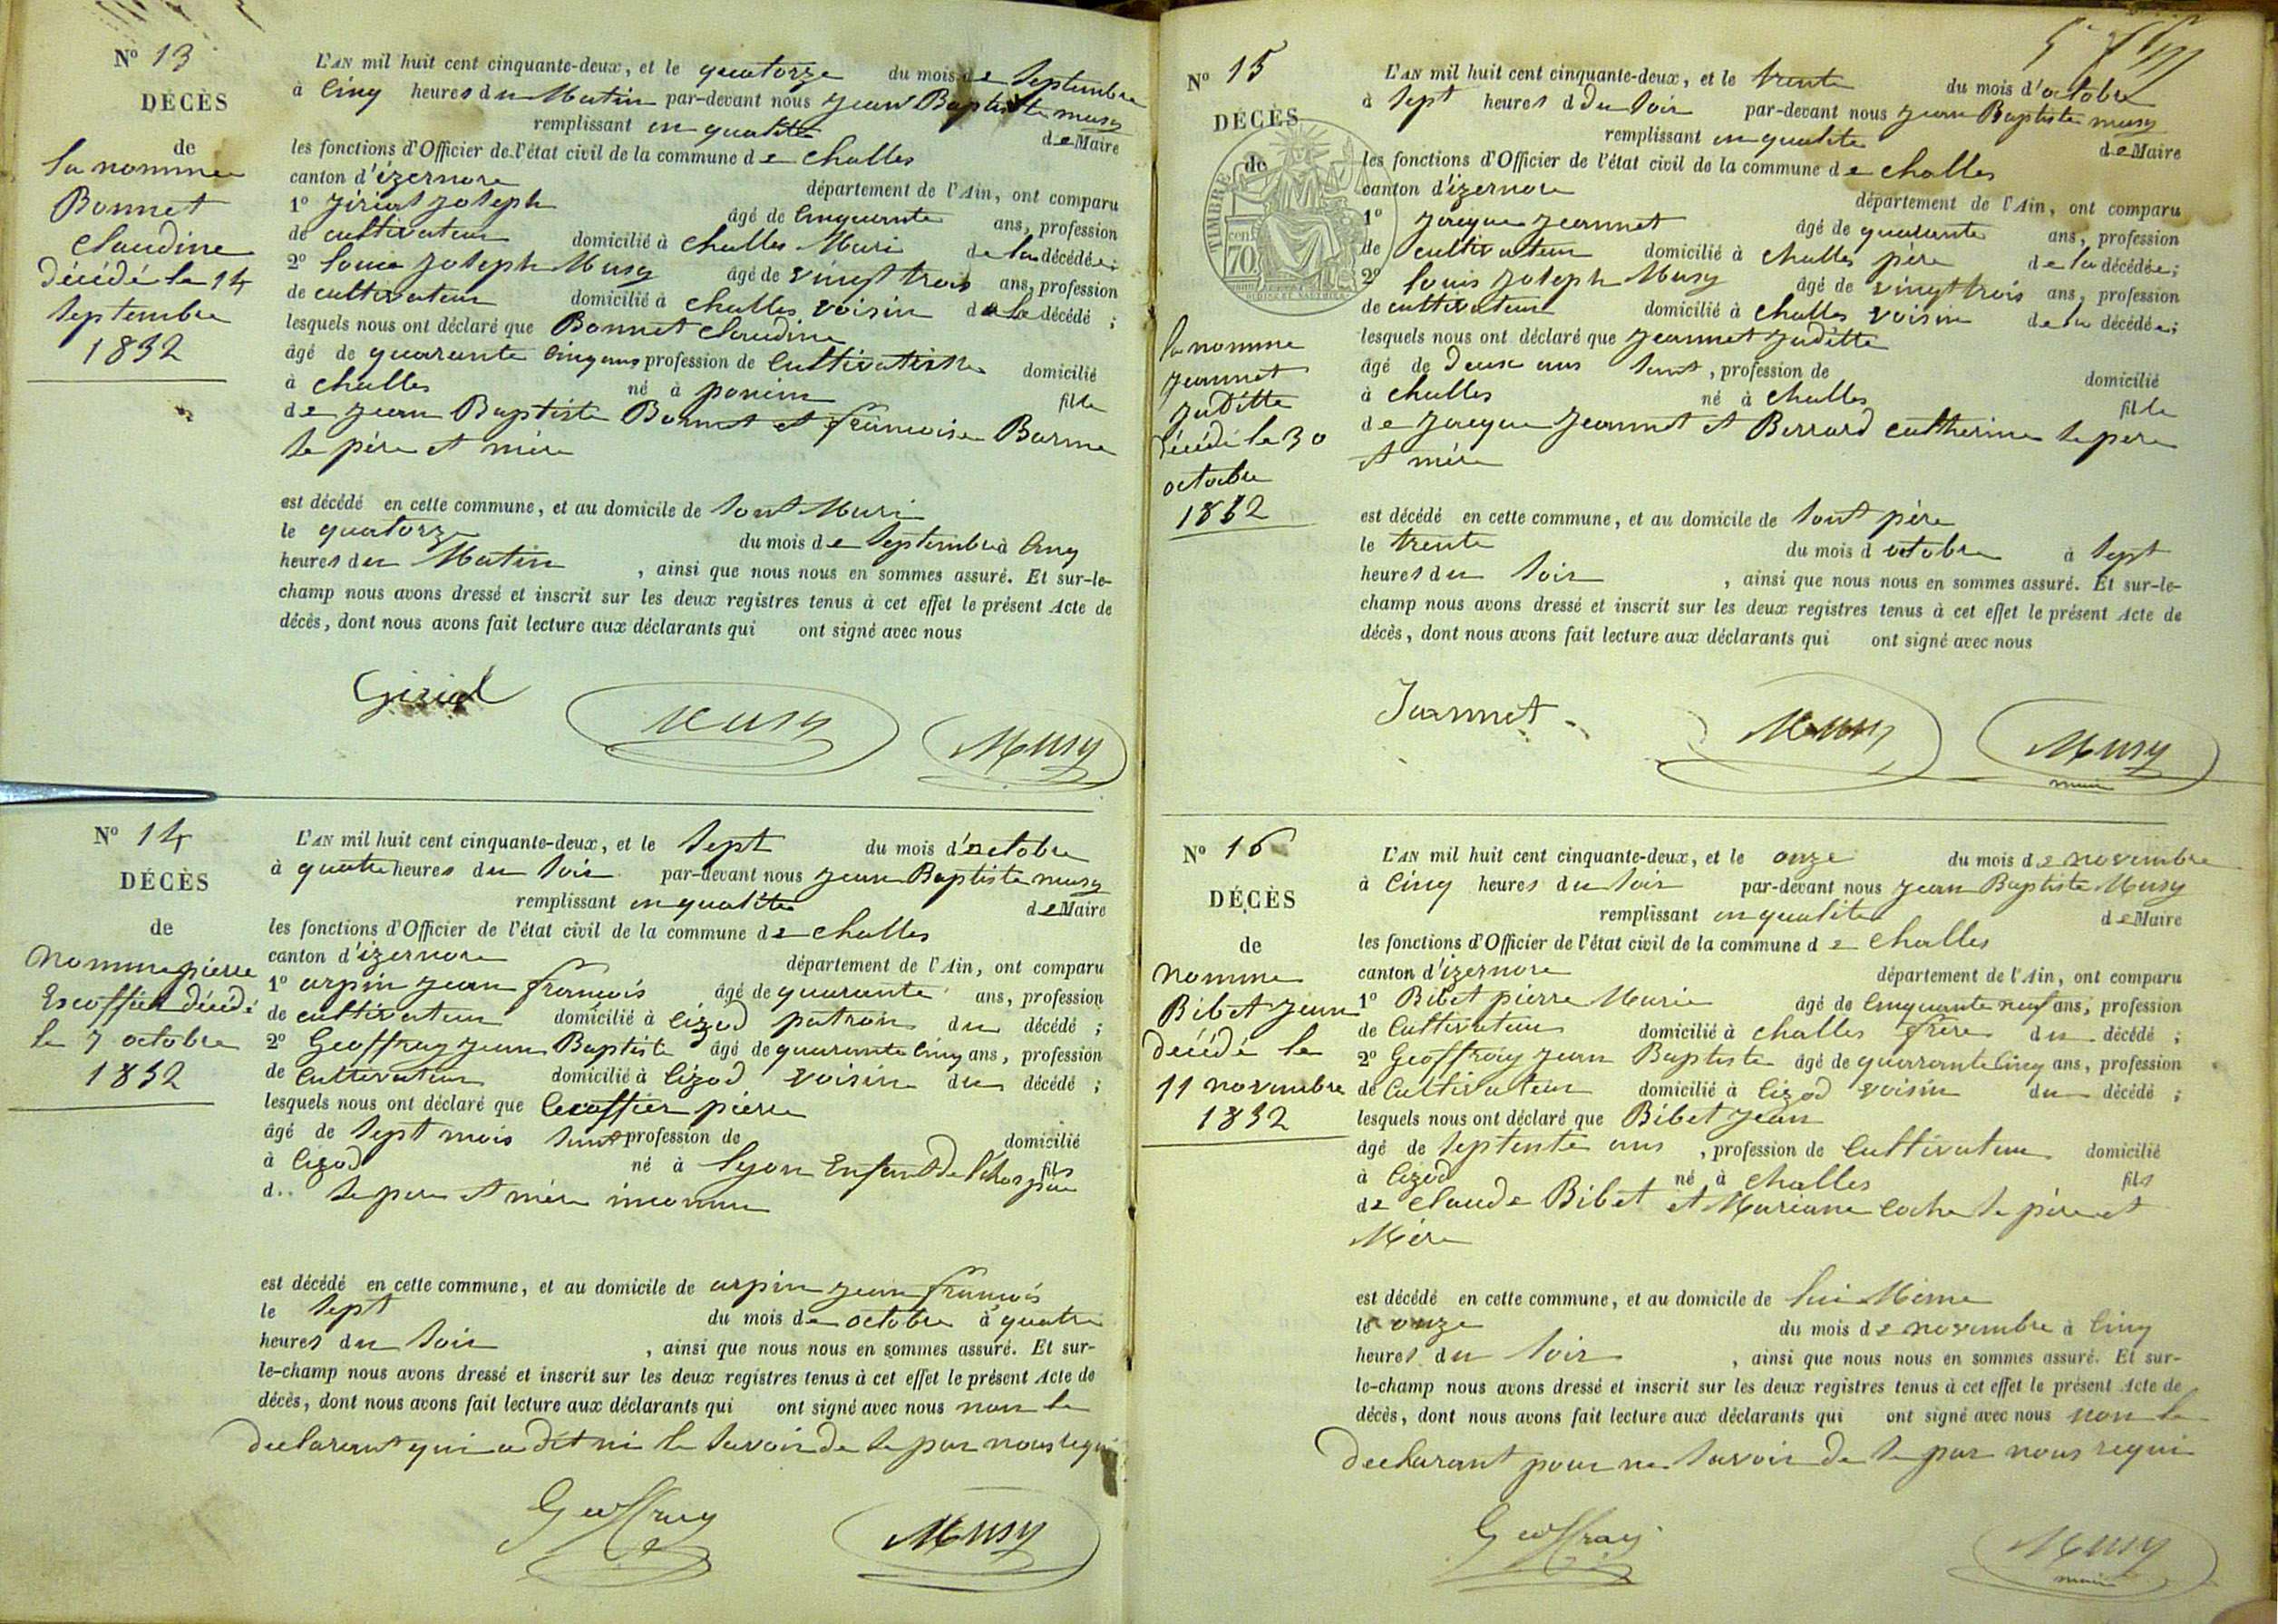 Nº 13
DÉCÈS
de
la nommée
Bonnet
Claudine
décédé le 14
septembre
1852
L'AN mil huit cent cinquante-deux, et le quatorze du mois de septembre
à cinq heures du Matin par-devant nous jean Baptiste musy
remplissant en qualité de Maire
les fonctions d'Officier de l'état civil de la commune de challes
canton d'izernore département de l'Ain, ont comparu
1º joseph âgé de cinquante ans, profession
de cultivateur domicilié à challes Mari de la décédée;
2º Louis joseph Musy âgé de vingt trois ans, profession
de cultivateur domicilié à challes voisin de la décédé ;
lesquels nous ont déclaré que Bonnet claudine
âgé de quarante cinq ans profession de cultivatrice domicilié
à challes né à poncin fille
de jean Baptiste Bonnet et françoise Barme
se père et mère
est décédé en cette commune, et au domicile de sont Mari
le quatorze du mois de septembre à cinq
heures du Matin , ainsi que nous nous en sommes assuré. Et sur-le-
champ nous avons dressé et inscrit sur les deux registres tenus à cet effet le présent Acte de
décès, dont nous avons fait lecture aux déclarants qui ont signé avec nous
Girial Musy Musy
Nº 14
DÉCÈS
de
nomme pierre
Escoffier décédé
le 7 octobre
1852
L'AN mil huit cent cinquante-deux, et le sept du mois d'octobre
à quatre heures du soir par-devant nous jean Baptiste musy
remplissant en qualité de Maire
les fonctions d'Officier de l'état civil de la commune de challes
canton d'izernore département de l'Ain, ont comparu
1º arpin jean françois âgé de quarante ans, profession
de cultivateur domicilié à cizod patron du décédé ;
2º Geoffray jean Baptiste âgé de quarante cinq ans, profession
de cultivateur domicilié à cizod voisin du décédé ;
lesquels nous ont déclaré que pierre
âgé de sept mois sant profession de domicilié
à cizod né à lyon Enfant de fils
d.. se père et mère inconnu
est décédé en cette commune, et au domicile de arpin jean françois
le sept du mois de octobre à quatre
heures du soir , ainsi que nous nous en sommes assuré. Et sur-
le-champ nous avons dressé et inscrit sur les deux registres tenus à cet effet le présent Acte de
décès, dont nous avons fait lecture aux déclarants qui ont signé avec nous non le
declarant qui a dit ni le savoir de se par nous requi
Geoffray Musy
Nº 15
DÉCÈS
de
TIMBRE
cen.
70
la nomme
jeannet
juditte
décédé le 30
octobre
1852
L'AN mil huit cent cinquante-deux, et le trente du mois d'octobre
à sept heures d du soir par-devant nous jean Baptiste musy
remplissant en qualité de Maire
les fonctions d'Officier de l'état civil de la commune de challes
canton d'izernore département de l'Ain, ont comparu
1º jacque jeannet âgé de quarante ans, profession
de cultivateur domicilié à challes père de la décédée;
2º Louis joseph Musy âgé de vingt trois ans, profession
de cultivateur domicilié à challes voisin de la décédée;
lesquels nous ont déclaré que jeannet juditte
âgé de deux ans sant , profession de domicilié
à challes né à challes fille
de jacque jeannet et Berrard catherine se père
et mère
est décédé en cette commune, et au domicile de sont père
le trente du mois d octobre à sept
heures du soir , ainsi que nous nous en sommes assuré. Et sur-le-
champ nous avons dressé et inscrit sur les deux registres tenus à cet effet le présent Acte de
décès, dont nous avons fait lecture aux déclarants qui ont signé avec nous
Jeannet Musy Musy
maire
Nº 16
DÉCÈS
de
nomme
Bibet jean
décédé le
11 novembre
1852
L'AN mil huit cent cinquante-deux, et le onze du mois de novembre
à cinq heures du soir par-devant nous jean Baptiste Musy
remplissant en qualité de Maire
les fonctions d'Officier de l'état civil de la commune de challes
canton d'izernore département de l'Ain, ont comparu
1º Bibet pierre Marie âgé de cinquante neuf ans, profession
de cultivateur domicilié à challes frère du décédé ;
2º Geoffray jean Baptiste âgé de quarante cinq ans, profession
de cultivateur domicilié à cizod voisin du décédé ;
lesquels nous ont déclaré que Bibet jean
âgé de septente ans , profession de cultivateur domicilié
à cizod né à challes fils
de claude Bibet et Mariane coche se père et
Mère
est décédé en cette commune, et au domicile de lui Même
le onze du mois de novembre à cinq
heures du soir , ainsi que nous nous en sommes assuré. Et sur-
le-champ nous avons dressé et inscrit sur les deux registres tenus à cet effet le présent Acte de
décès, dont nous avons fait lecture aux déclarants qui ont signé avec nous non le
declarant pour ne savoir de se par nous requi
Geoffray Musy
maire